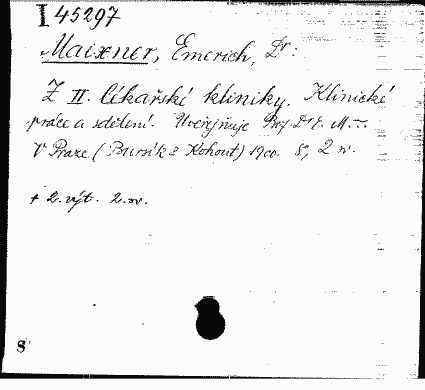 I 45297
Maixner, Emerich, Dr:
Z II. lékařské kliniky. Klinické
práce a sdělení. Uveřejňuje Prof. Dr E. M—.
V Praze. (Bursík & Kohout) 1900. 8°, 2 sv.
+ 2. výt. 2. sv.
8